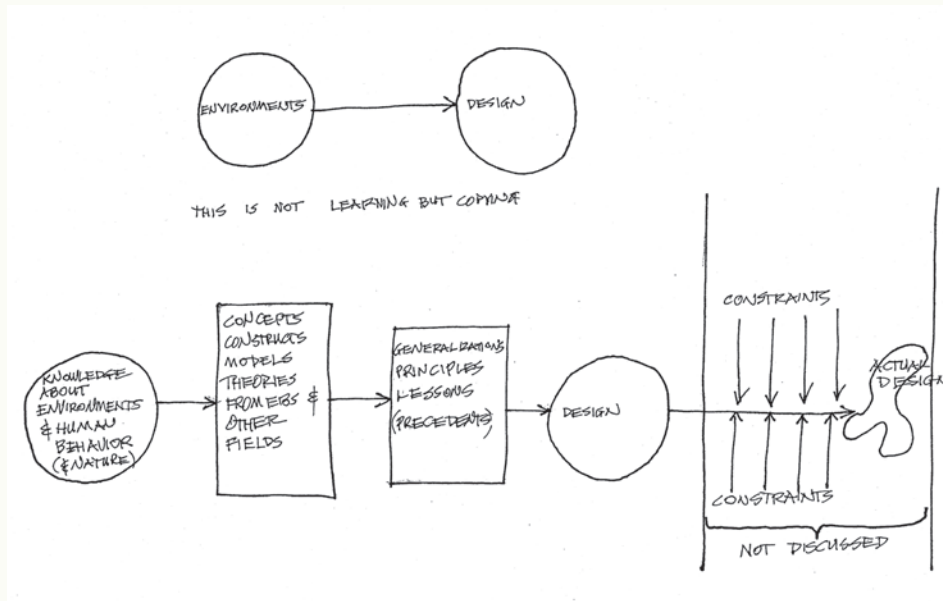 ENVIRONMENTS
DESIGN
THIS IS NOT LEARNING BUT COPYING
KNOWLEDGE
ABOUT
ENVIRONMENTS
& HUMAN
BEHAVIOR
(& NATURE)
CONCEPTS
CONSTRUCTS
MODELS
THEORIES
FROM EBS &
OTHER
FIELDS
GENERALIZATIONS
PRINCIPLES
LESSONS
(PRECEDENTS)
DESIGN
CONSTRAINTS
CONSTRAINTS
ACTUAL
DESIGN
NOT DISCUSSED